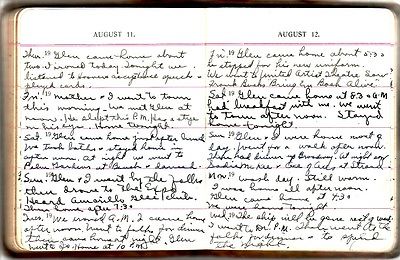 AUGUST 11.
Thu. 19 Glen came home about
two. I ironed today. Tonight we
listened to Hoovers acceptance speech
played cards.
Fri. 19 Mother + I went to town
this morning. We met Glen at
noon. He slept this P.M. Has a sty
in his eye. Home tonight.
Sat. 19 Glen came home just after lunch
We took baths + stayed home in
after noon. At night we went to
Palm Gardens at
Sun 19 Glen + I went by the folks
then drove to The Expo
Heard Amarillo Glee Club.
home after 7:30
Tues. 19 We A.M. I came home
after noon. Went to folks for dinner
Then came home at night. Glen
went to Home at 10 P.M.
AUGUST 12.
Fri. 19 Glen came home about 5:30
He stopped for his new uniform.
We went to United Artist Theatre. Saw
Frank Bucks Bring Em Back Alive.
Sat. 19 Glen came home at 8:30 A.M
had breakfast with me. We went
to town after noon. Stayed
home tonight.
Sun. 19 Glen + I were home most of
day. Went for a walk after noon.
Then had dinner on Broadway. At night
Mon. 19 wash day. Still warm.
I was home all after noon.
Glen came home at 4:30
We were home tonight
Wed. 19 The ship will be gone rest of week
I went to Dr. P.M. Then went to the
folks for dinner + to spend
the night.